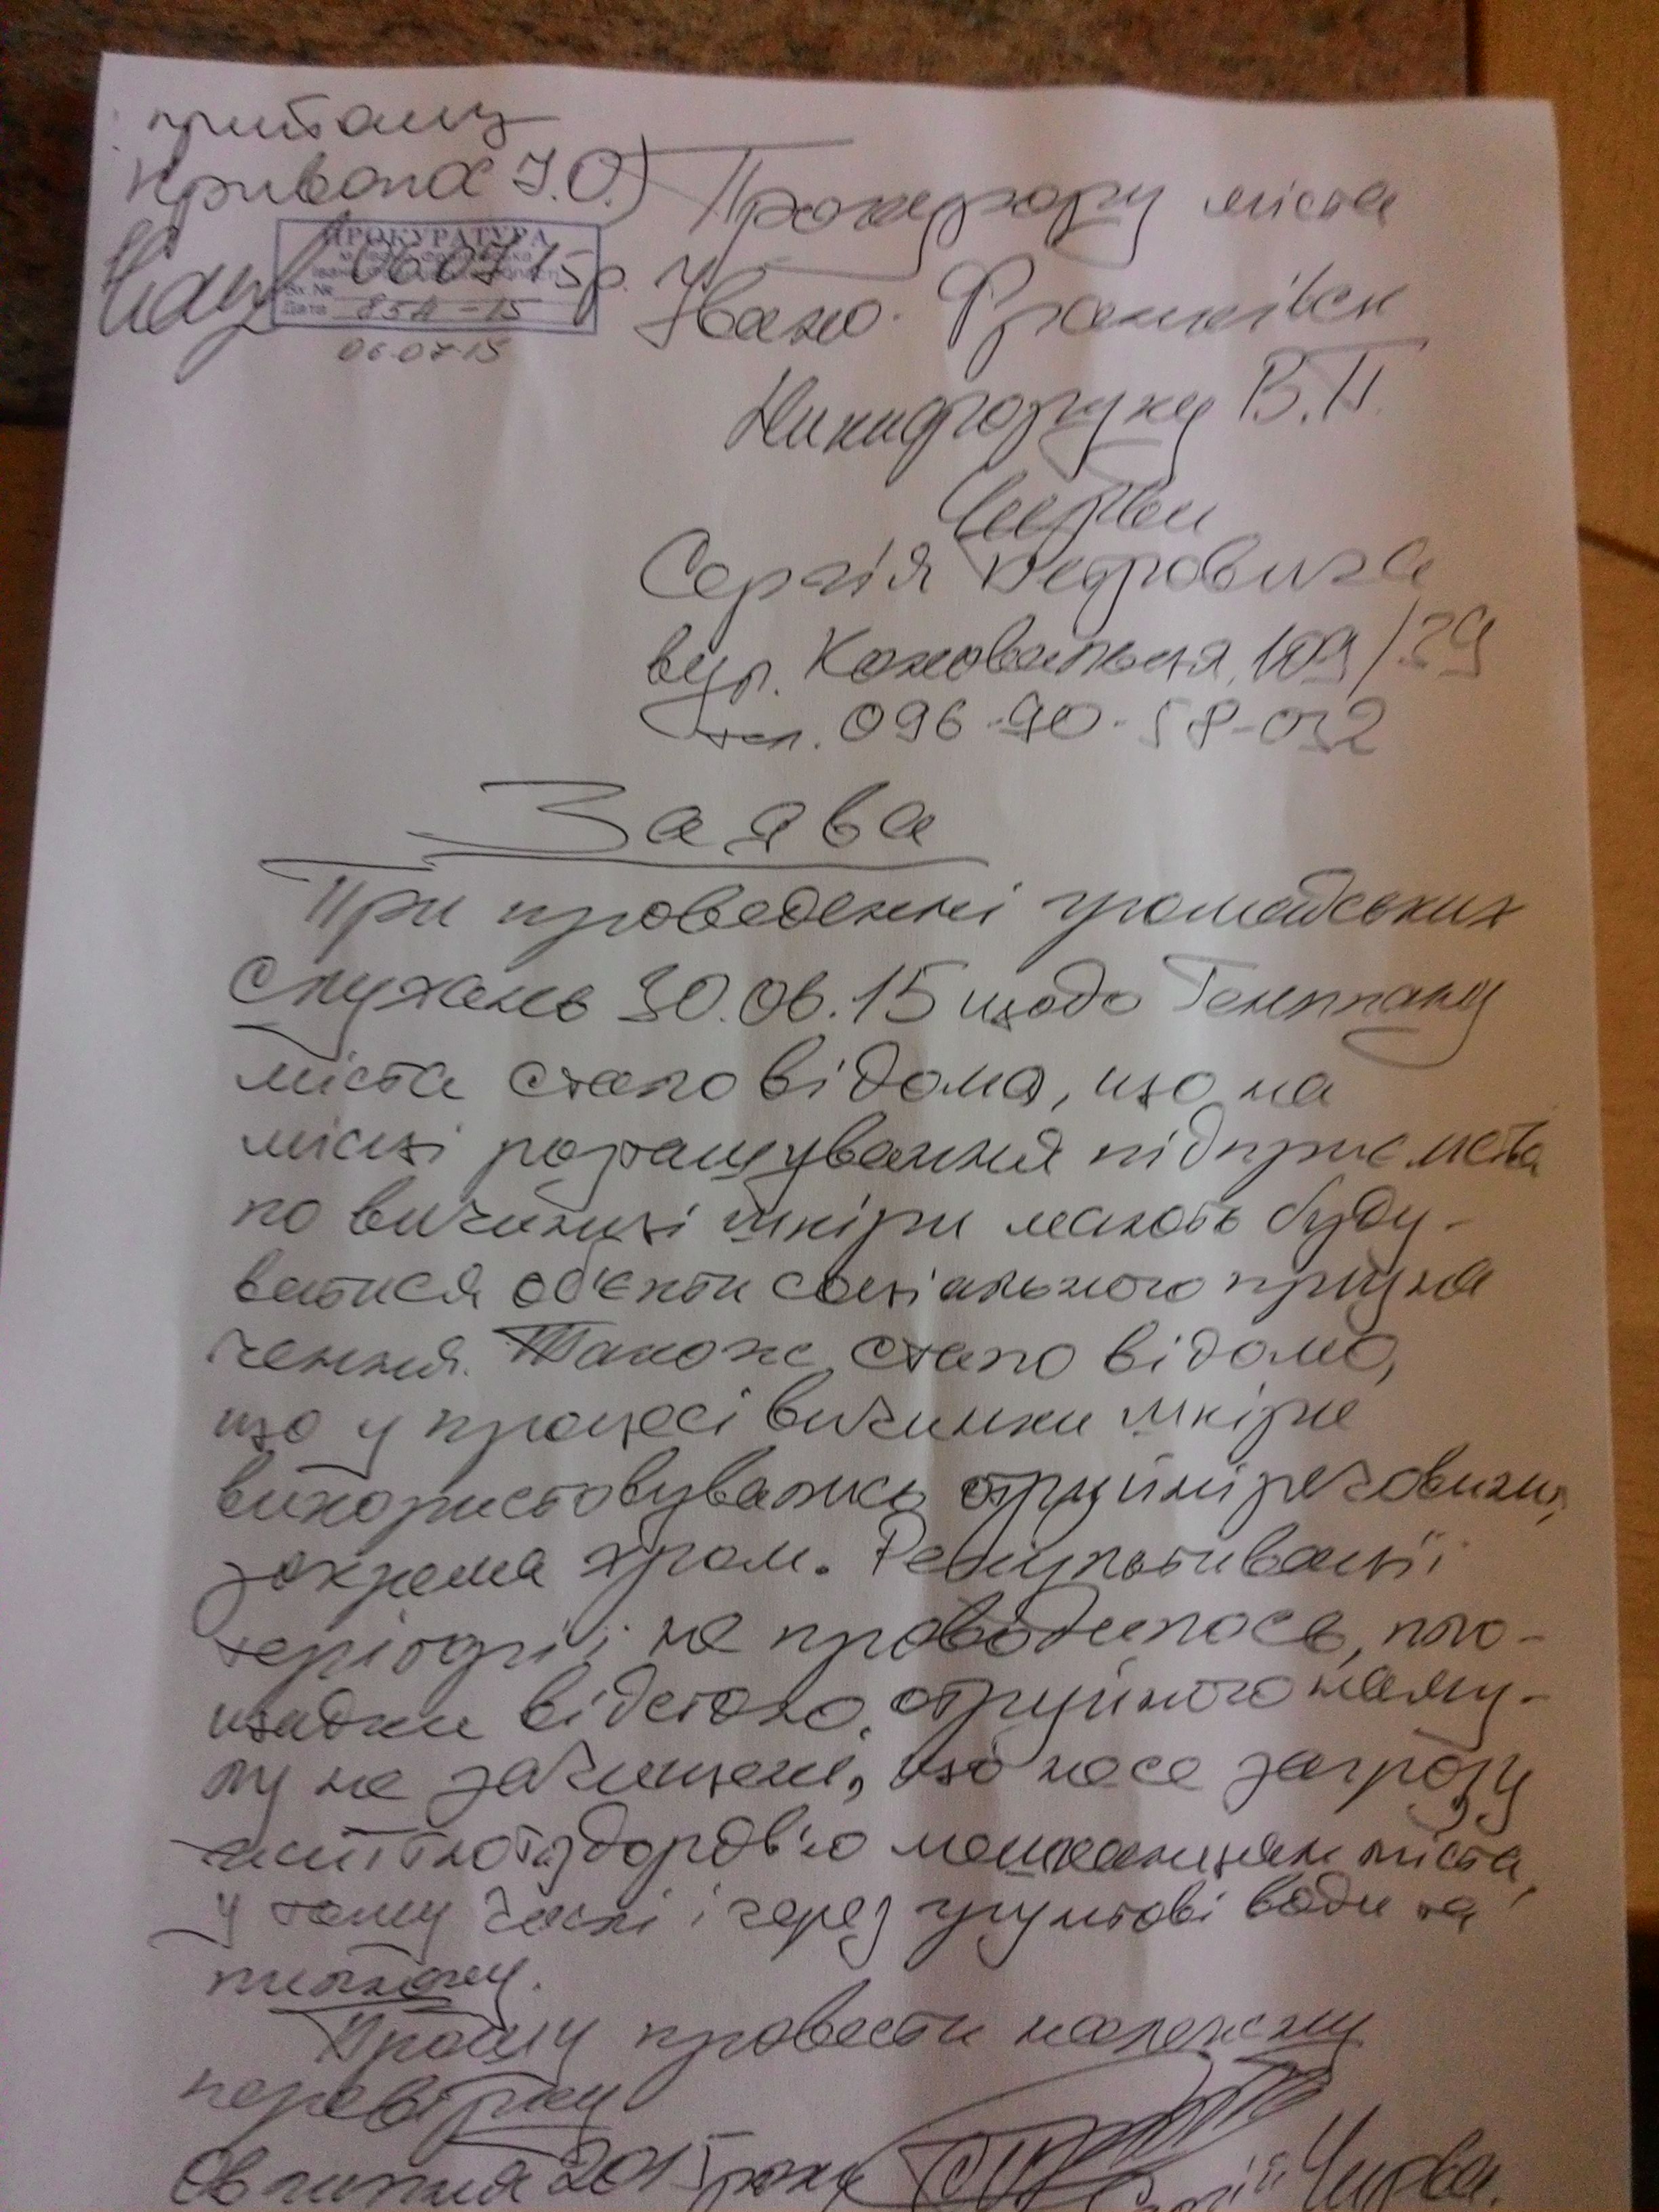 прийшлу
Кривопа І.О.)
ПРОКУРАТУРА
06.07.15р.
Вх. №
Дата 85д-15
06.07.15
Прокурору міста
Івано-Франківськ
Никифоруку В.П.
Чирви
Сергія Петровича
вул. Коновальця, 109/29
тел. 096-90-58-032
Заява
При проведенні громадських
слухань 30.06.15 щодо Генплану
міста стало відомо, що на
місці розташування підприємства
по вичинці шкіри мають буду-
ватися об'єкти соціального призна
чення. Також стало відомо,
що у процесі вичинки шкіри
використовувались отруйні речовини,
зокрема хром. Рекультивації
теріторії не проводилось, пло-
щадки відстою отруйного наму-
лу не зачищені, що несе загрозу
життю та здоров'ю мешканцям міста,
у тому числі і через грунтові води та
пилюку.
Прошу провести належну
перевірку
06 липня 2015 року Сергій Чирва.